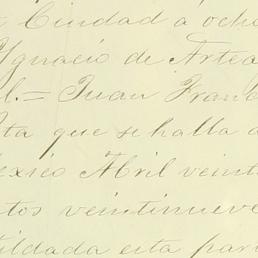 Ciudad a ocho
Ygnacio de Artea
l.= Juan Franc
ta que se halla a
exico Abril veint
tos veintinueve
tildada esta par